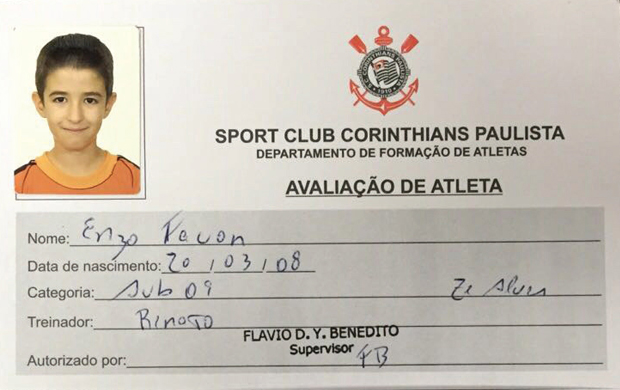 CORINTHIANS PAULISTA
1910
SPORT CLUB CORINTHIANS PAULISTA
DEPARTAMENTO DE FORMAÇÃO DE ATLETAS
AVALIAÇÃO DE ATLETA
Nome: Enzo
Data de nascimento: 20 / 03 / 08
Categoria: Sub 09 Zé Alves
Treinador: Rinato
FLAVIO D. Y. BENEDITO
Supervisor
Autorizado por: FB